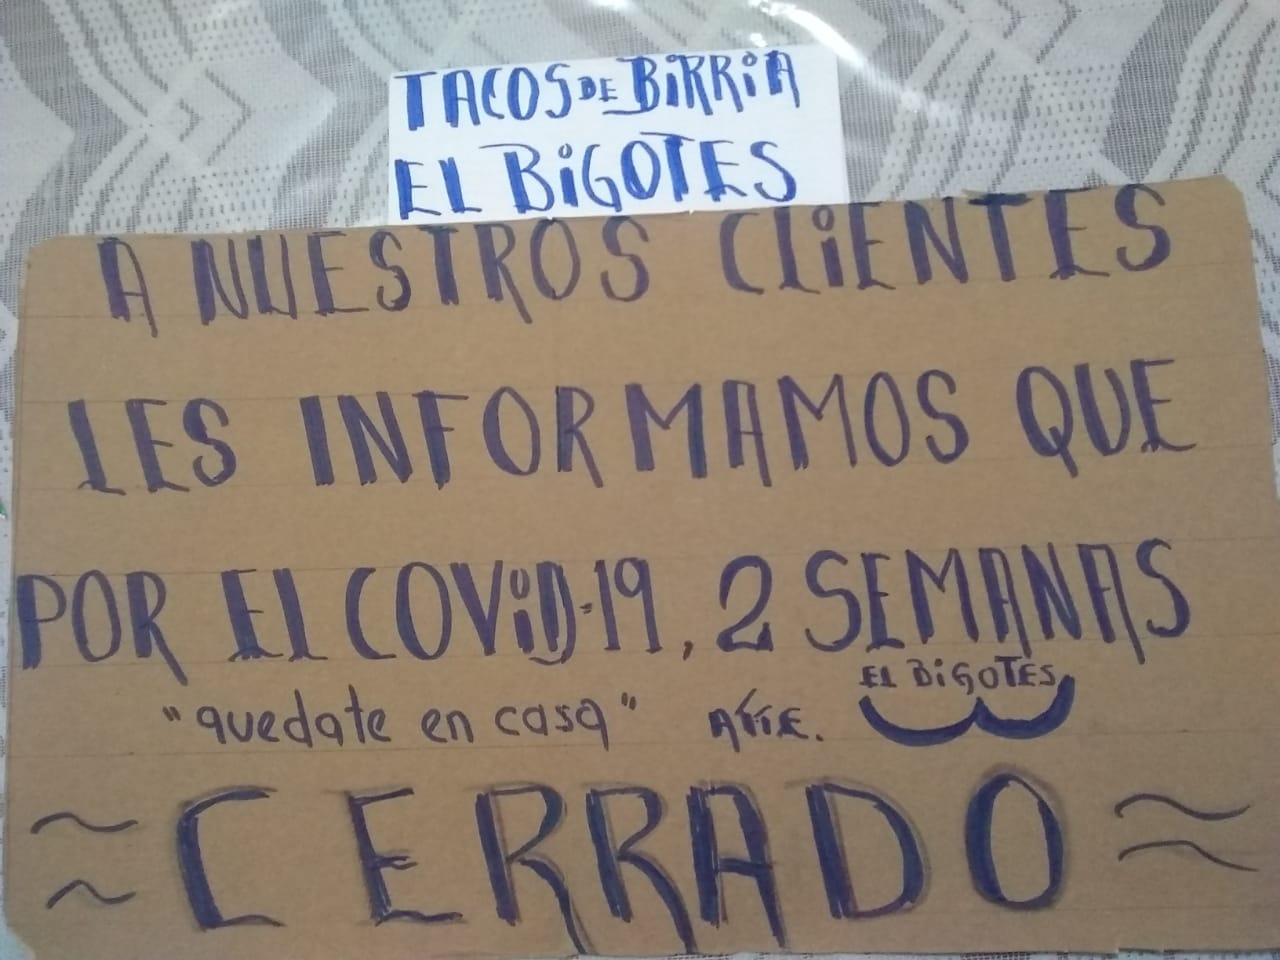 TACOS DE BiRRiA
EL BiGOTES
A NUESTROS CLiENTES
LES INFORMAMOS QUE
POR EL COViD-19, 2 SEMANAS
EL BiGOTES
"quedate en casa" ATTE.
~ CERRADO ~
~ ~